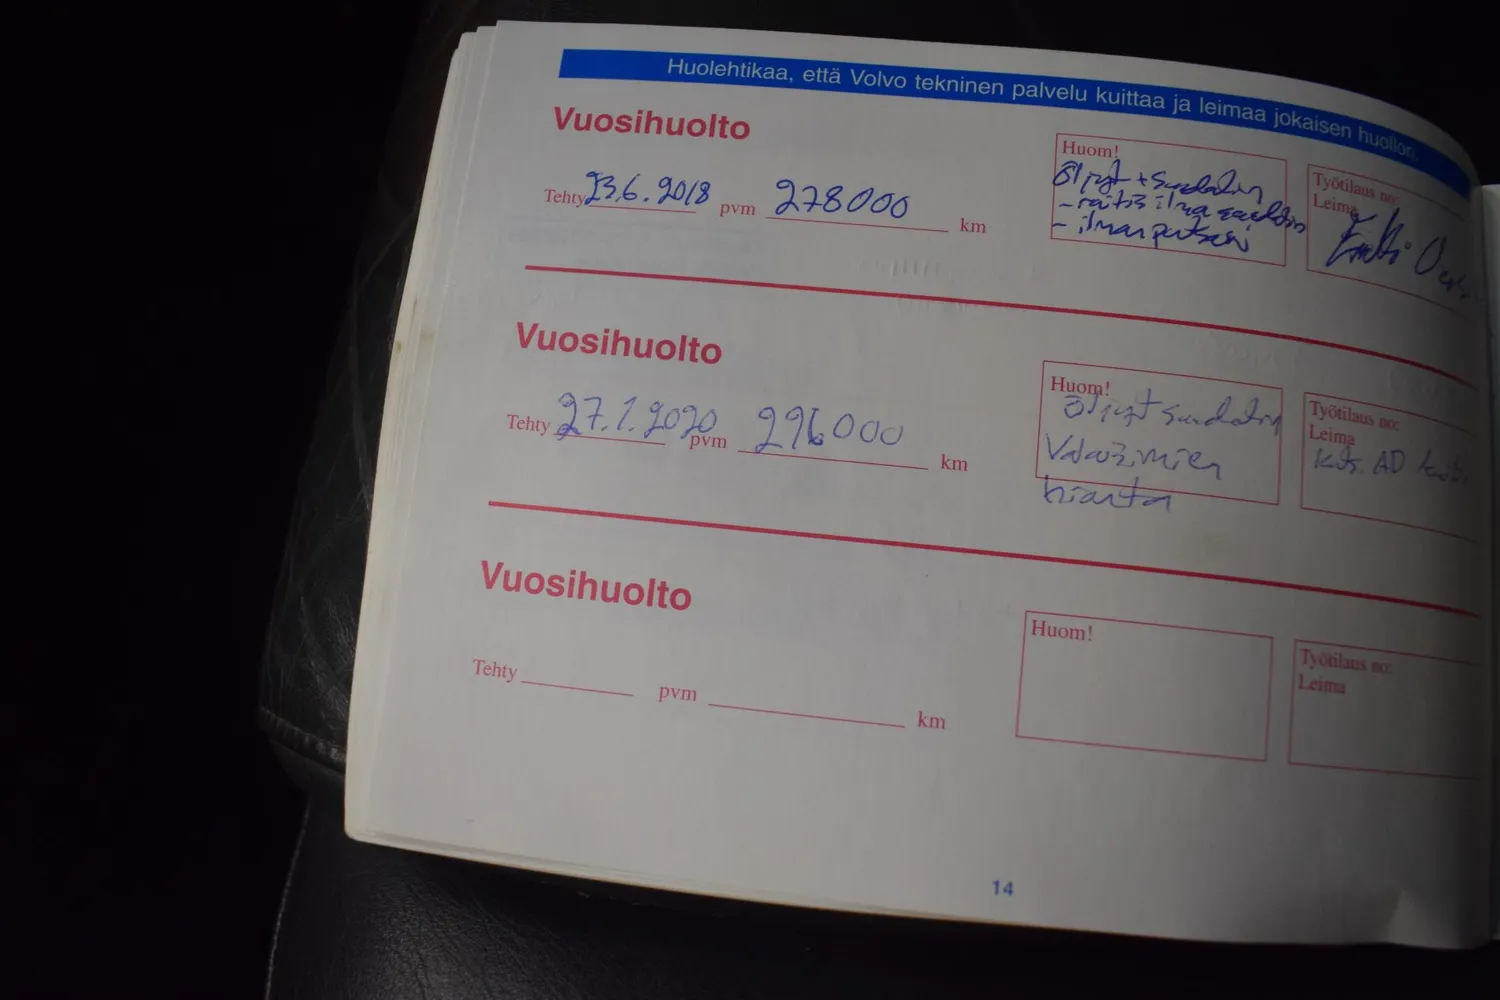 Huolehtikaa, että Volvo tekninen palvelu kuittaa ja leimaa jokaisen huollon.
Vuosihuolto
Tehty 23.6.2018 pvm 278000 km
Huom!
Öljyt + suodatin
- raitis ilma suodatin
- ilman puhdistin
Työtilaus no:
Leima
Vuosihuolto
Tehty 27.1.2020 pvm 296000 km
Huom!
Öljyt suodatin
Valaisimien
hionta
Työtilaus no:
Leima
kts. AD
Vuosihuolto
Tehty pvm km
Huom!
Työtilaus no:
Leima
14